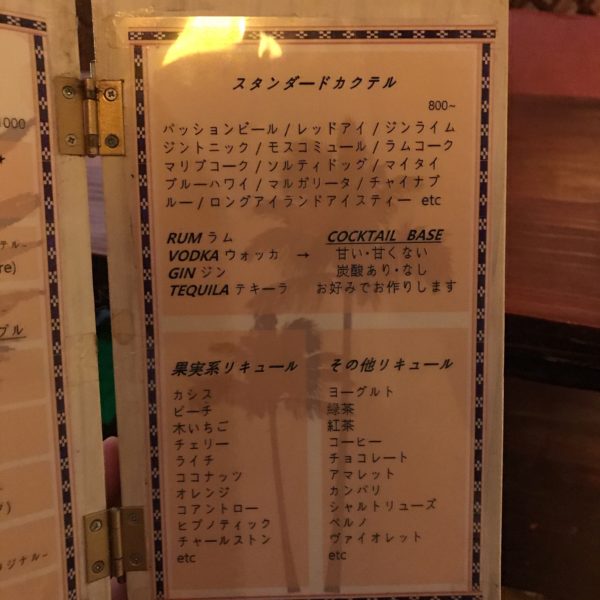 スタンダードカクテル
800~
パッションビール / レッドアイ / ジンライム
ジントニック / モスコミュール / ラムコーク
マリブコーク / ソルティドッグ / マイタイ
ブルーハワイ / マルガリータ / チャイナブ
ルー / ロングアイランドアイスティー etc
RUM ラム COCKTAIL BASE
VODKA ウォッカ → 甘い・甘くない
GIN ジン 炭酸あり・なし
TEQUILA テキーラ お好みでお作りします
果実系リキュール
カシス
ピーチ
木いちご
チェリー
ライチ
ココナッツ
オレンジ
コアントロー
ヒプノティック
チャールストン
etc
その他リキュール
ヨーグルト
緑茶
紅茶
コーヒー
チョコレート
アマレット
カンパリ
シャルトリューズ
ペルノ
ヴァイオレット
etc